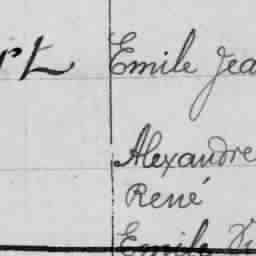 rt Emile Jea
Alexandre
René
Emile